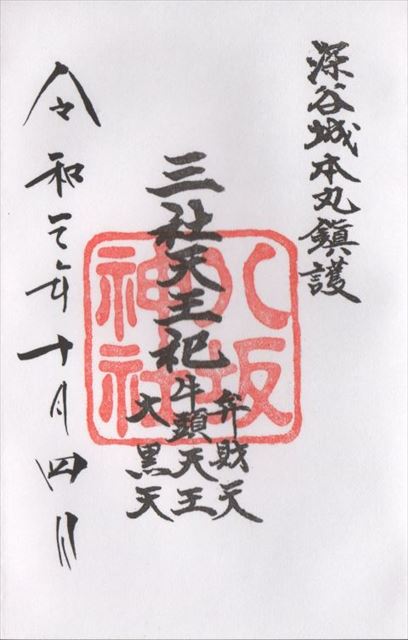 深谷城本丸鎮護
三社天王祀
弁財天
牛頭天王
大黒天
八坂
神社
令和元年十月四日